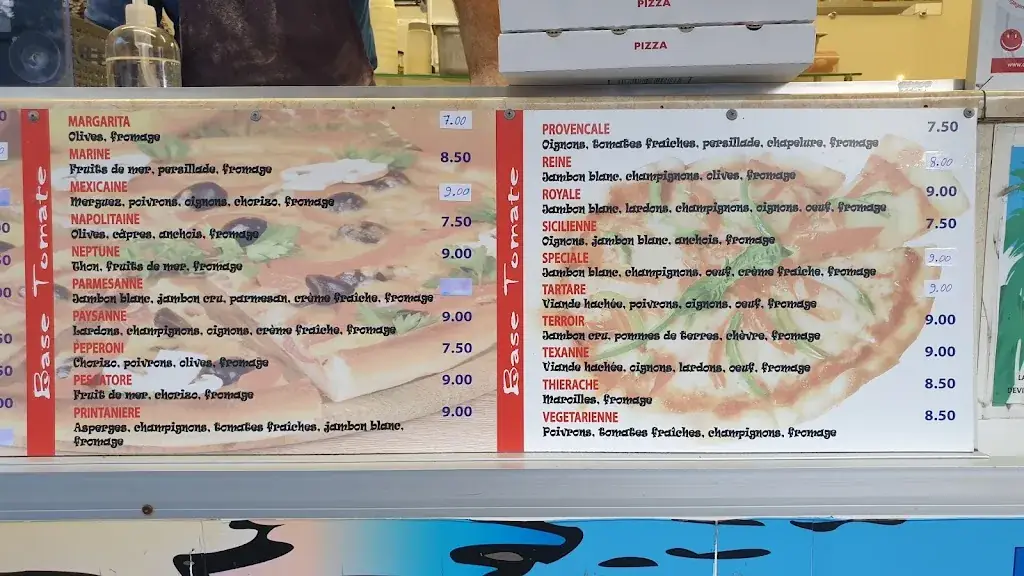 PIZZA
PIZZA
Base Tomate
MARGARITA 7.00
Olives, fromage
MARINE 8.50
Fruits de mer, persillade, fromage
MEXICAINE 9.00
Merguez, poivrons, oignons, chorizo, fromage
NAPOLITAINE 7.50
Olives, câpres, anchois, fromage
NEPTUNE 9.00
Thon, fruits de mer, fromage
PARMESANNE
Jambon blanc, jambon cru, parmesan, crème fraîche, fromage
PAYSANNE 9.00
Lardons, champignons, oignons, crème fraîche, fromage
PEPERONI 7.50
Chorizo, poivrons, olives, fromage
PESCATORE 9.00
Fruit de mer, chorizo, fromage
PRINTANIERE 9.00
Asperges, champignons, tomates fraîches, jambon blanc,
fromage
Base Tomate
PROVENCALE 7.50
Oignons, tomates fraîches, persillade, chapelure, fromage
REINE 8.00
Jambon blanc, champignons, olives, fromage
ROYALE 9.00
Jambon blanc, lardons, champignons, oignons, oeuf, fromage
SICILIENNE 7.50
Oignons, jambon blanc, anchois, fromage
SPECIALE 9.00
Jambon blanc, champignons, oeuf, crème fraîche, fromage
TARTARE 9.00
Viande hachée, poivrons, oignons, oeuf, fromage
TERROIR 9.00
Jambon cru, pommes de terres, chèvre, fromage
TEXANNE 9.00
Viande hachée, oignons, lardons, oeuf, fromage
THIERACHE 8.50
Maroilles, fromage
VEGETARIENNE 8.50
Poivrons, tomates fraîches, champignons, fromage